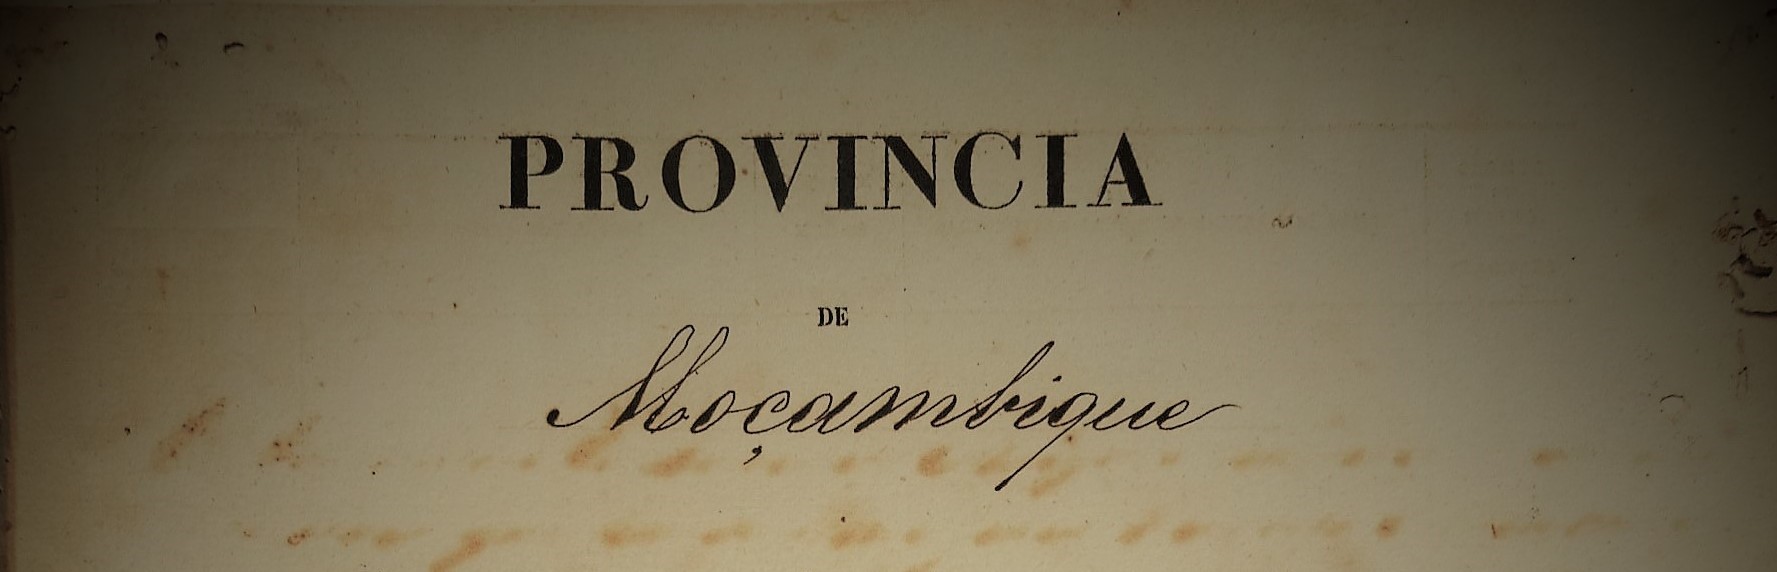 PROVINCIA
DE
Moçambique